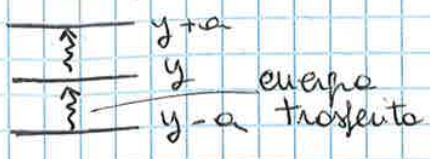 y+a
y
energia
y-a trasferita